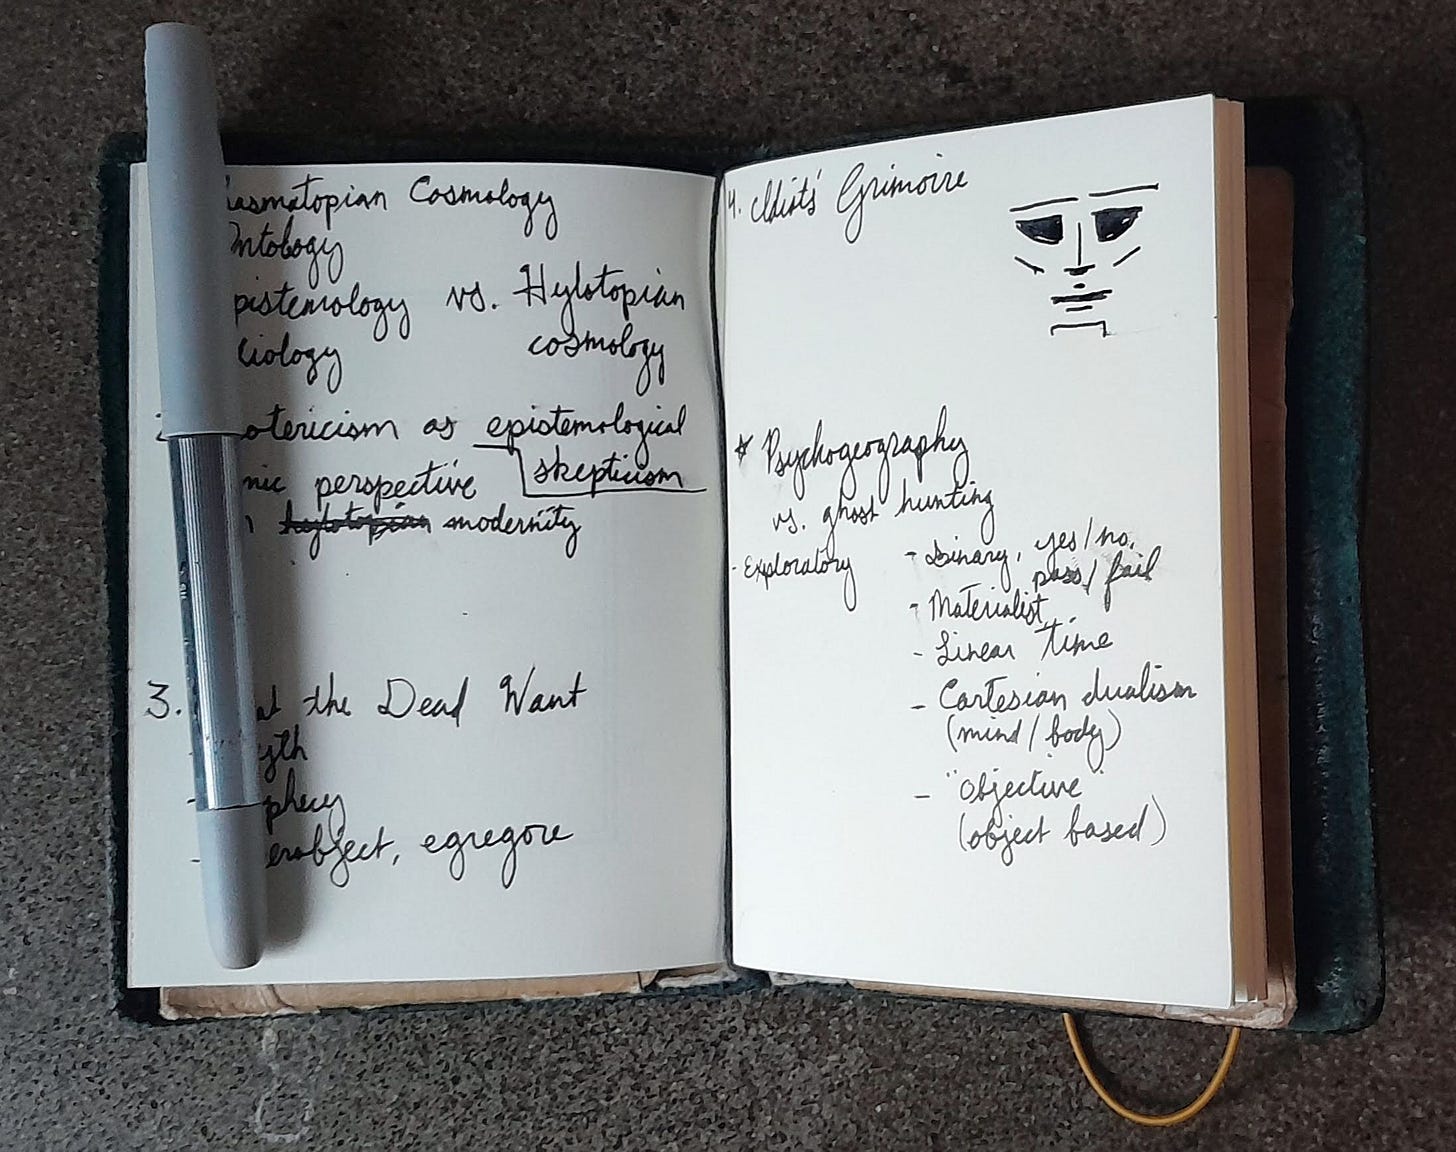 asmatopian Cosmology
ntology
pistemology vs. Hylotopian
ciology cosmology
otericism as epistemological
skepticism
nic perspective
hylotopian modernity
3. at the Dead Want
yth
- phecy
- erobject, egregore
4. Idiots' Grimoire
* Psychogeography
vs. ghost hunting
- Exploratory
- binary, yes/no,
pass/fail
- Materialist
- Linear time
- Cartesian dualism
(mind/body)
- "Objective"
(object based)